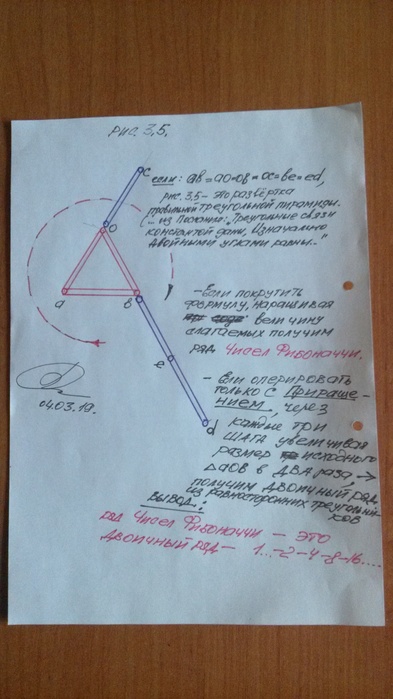 рис. 3,5.
c
если: ав = ао = ов = ос = ве = ed,
рис. 3,5 – это развёртка
правильной треугольной пирамиды.
... из Послания: "Треугольные связи
константой даны, Изначально
двойными углами равны..."
o
a
в
– Если покрутить
формулу, наращивая
величину
слагаемых получим
ряд Чисел Фибоначчи.
e
d
04.03.19.
– Если оперировать
только с Прираще-
нием, через
каждые три
шага увеличивая
размер исходного
∆аов в два раза, →
получим двоичный ряд
из равносторонних треугольни-
ков
Вывод:
ряд Чисел Фибоначчи – это
двоичный ряд – 1...-2-4-8-16....